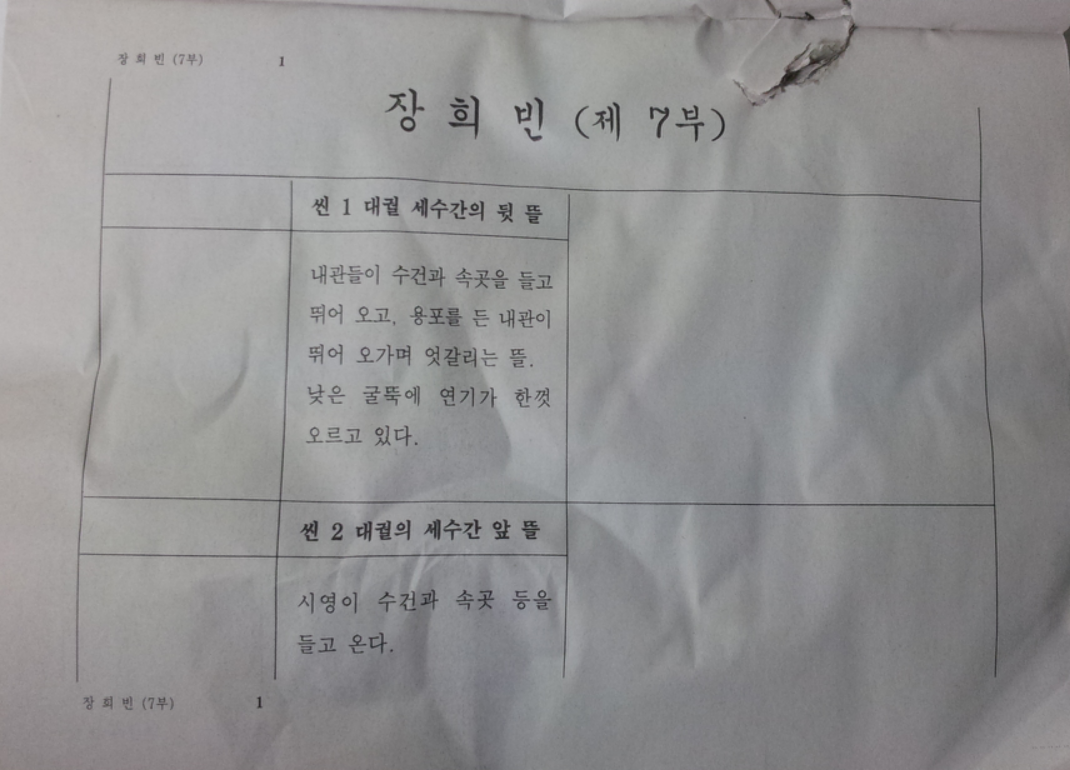 장 희 빈 (7부) 1
장 희 빈 (제 7부)
씬 1 대궐 세수간의 뒷 뜰
내관들이 수건과 속곳을 들고
뛰어 오고, 용포를 든 내관이
뛰어 오가며 엇갈리는 뜰.
낮은 굴뚝에 연기가 한껏
오르고 있다.
씬 2 대궐의 세수간 앞 뜰
시영이 수건과 속곳 등을
들고 온다.
장 희 빈 (7부) 1